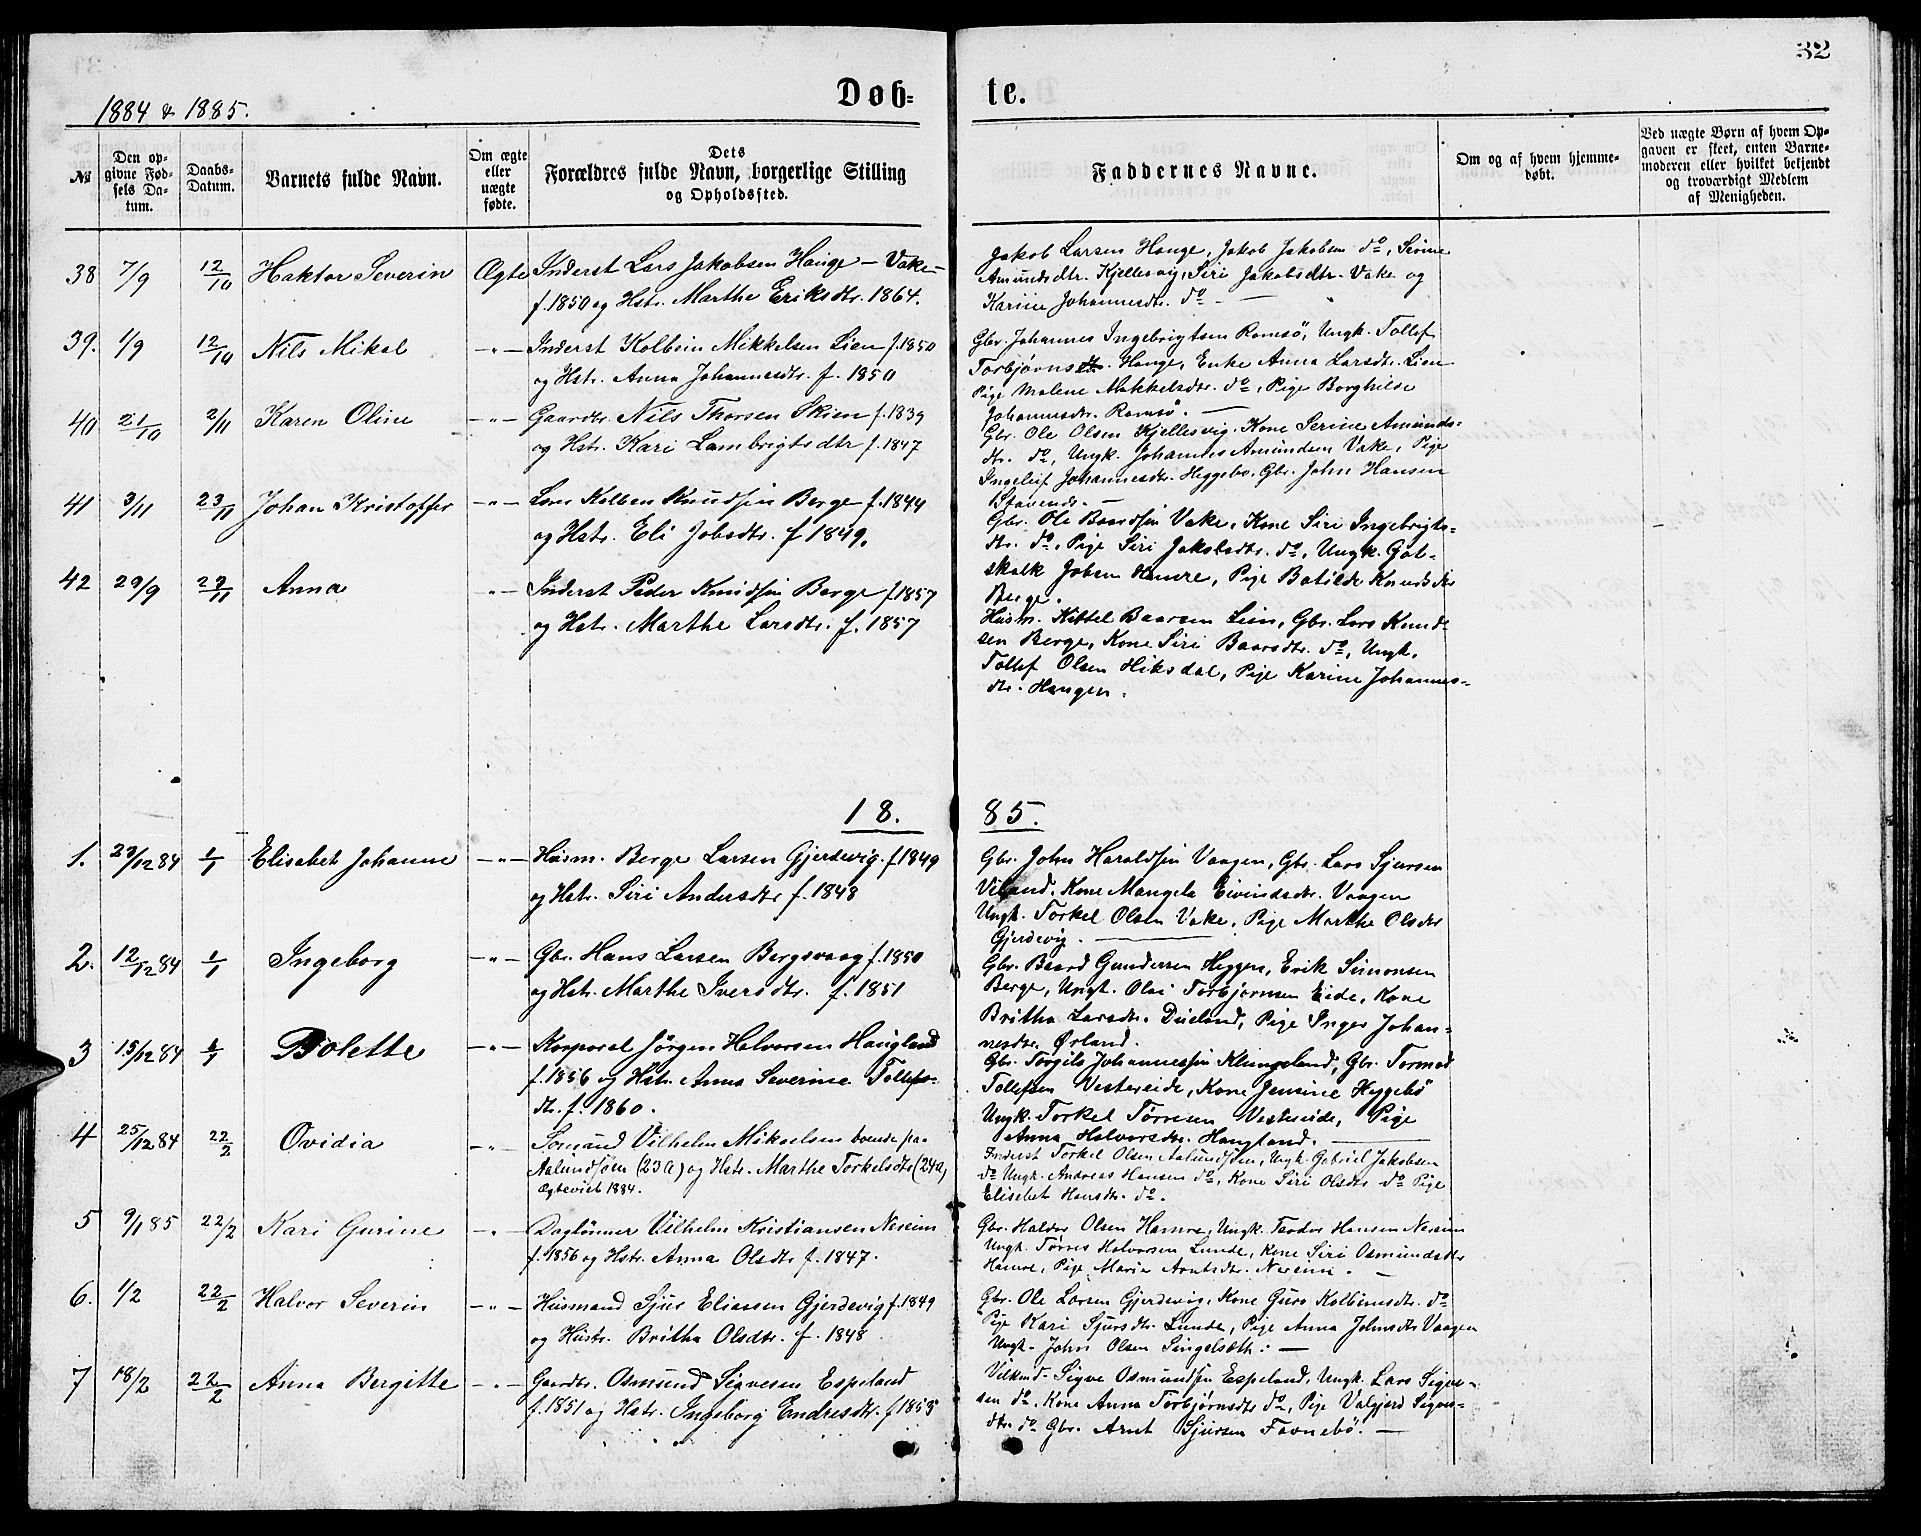 32
Døb= te.
1884 & 1885.
№
Den opgivne Fødsels Datum.
Daabs-Datum.
Barnets fulde Navn.
Om ægte eller uægte fødte.
Dets Forældres fulde Navn, borgerlige Stilling og Opholdssted.
Faddernes Navne.
Om og af hvem hjemmedøbt.
Ved uægte Børn af hvem Opgaven er skeet, enten Barnemoderen eller hvilket betjendt og troværdigt Medlem af Menigheden.
38 7/9 12/10 Haktor Severin Ægte Inderst Lars Jakobsen Hauge – Vake –
f. 1850 og Hstr. Marthe Eriksdtr. 1864.
Jakob Larsen Hauge, Jakob Jakobsen do, Serine
Amundsdtr. Kjellesvig, Siri Jakobsdtr. Vake og
Karine Johannesdtr. do –
39. 1/9 12/10 Nils Mikal –"– Inderst Kolbein Mikkelsen Lien f. 1850
og Hstr. Anna Johannesdtr. f. 1850
Gbr. Johannes Ingebrigtsen Romsö, Ungk. Tollef
Torbjørns. Hauge, Enke Anna Larsdtr. Lien
Pige Malene Mikkelsdtr. do, Pige Borghilde
Johannesdtr. Romsö. –
40 21/10 2/11 Karen Oline –"– Gaardbr. Nils Thorsen Skien f. 1839
og Hstr. Kari Lambrigtsdtr f. 1847
Gbr. Ole Olsen Kjellesvig, Kone Serine Amunds-
dtr. do, Ungk. Johannes Amundsen Vake, Pige
Ingeleif Johannesdtr. Heggebø. Gbr. John Hansen
41 3/11 23/11 Johan Kristoffer –"– Lars Kolben Knudsen Berge f. 1844
og Hstr. Eli Jobsdtr. f 1849.
Gbr. Ole Baardsen Vake, Kone Siri Ingebrigts-
dtr. do, Pige Siri Jakobsdtr. do, Ungk. Got-
skalk Jobsen Hamre, Pige Botilde Knudsdtr
Berge.
42 29/9 23/11 Anna –"– Inderst Peder Knudsen Berge f. 1857
og Hstr. Marthe Larsdtr. f. 1857
Husm. Kittel Baarsen Lien, Gbr. Lars Knud-
sen Berge, Kone Siri Baarsdtr. do, Ungk.
Tollef Olsen Hiksdal, Pige Karine Johannes-
dtr. Haugen.
18. 85.
1. 23/12 84 1/1 Elisabet Johanne –"– Husm. Berge Larsen Gjerdevig f. 1849
og Hstr. Siri Andersdtr f. 1848
Gbr. John Haraldsen Vaagen, Gbr. Lars Sjursen
Viland. Kone Mangela Eivindsdtr. Vaagen
Ungk. Torkel Olsen Vake, Pige Marthe Olsdtr
Gjerdevig. –
2. 12/12 84 1/1 Ingeborg –"– Gbr. Hans Larsen Bergsvaag f. 1850
og Hstr. Marthe Iversdtr. f. 1851
Gbr. Baard Gundersen Heggen, Erik Simonsen
Berge, Ungk. Olai Torbjørnsen Eide, Kone
Britha Larsdtr. Dueland, Pige Inger Johan-
nesdtr. Ørland.
3 15/12 84 1/1 Bolette –"– Korporal Jörgen Halvorsen Haugland
f. 1856 og Hstr. Anna Severine Tollefs-
dtr. f. 1860.
Gbr. Torgils Johannessen Klungeland, Gbr. Tormod
Tollefsen Vestereide, Kone Jensine Heggebö
Ungk. Torkel Tørresen Vestereide, Pige
Anna Halvorsdtr. Haugland. –
4 25/12 84 22/2 Ovidia –"– Sömand Vilhelm Mikaelsen boende paa
Aalundsöen (23a) og Hstr. Marthe Torkelsdtr (24a)
Ægteviet 1884.
Inderst Torkel Olsen Aalundsöen, Ungk. Gabriel Jakobsen
do Ungk. Andreas Hansen do, Kone Siri Olsdtr do Pige
Elisabet Hansdtr. do.
5 9/1 85 22/2 Kari Gurine –"– Daglönner Vilhelm Kristiansen Nereim
f. 1856 og Hstr. Anna Olsdtr f. 1847.
Gbr. Haldor Olsen Hamre, Ungk. Teodor Hansen Nereim
Ungk. Tørres Halvorsen Lunde, Kone Siri Osmundsdtr
Hamre, Pige Maria Arntsdtr. Nereim. –
6. 1/2 22/2 Halvor Severin –"– Husmand Sjur Eliassen Gjerdevig f. 1849
og Hustr. Britha Olsdtr. f. 1848
Gbr. Ole Larsen Gjerdevig, Kone Guro Kolbinsdtr. do
Pige Kari Sjursdtr. Lunde, Pige Anna Johnsdtr Vaagen
Ungk. John Olsen Singelsæth. –
7 18/2 22/2 Anna Bergitte –"– Gaardbr. Osmund Sigvesen Espeland
f. 1851 og Hstr. Ingeborg Endresdtr. f. 1858
Sigve Osmundsen Espeland, Ungk. Lars Sigve-
sen do, Kone Anna Torbjørnsdtr do, Pige Valgjerd Sigves-
dtr. do Gbr. Arnt Sjursen Favnebö. –